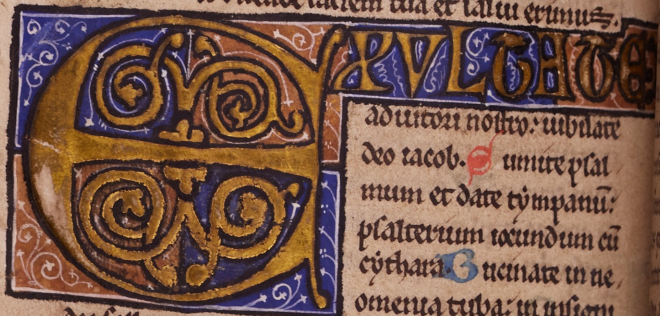 faciem tua et salui erimus.
EXVLTATE
adiutori nostro: iubilate
deo iacob. Sumite psal
mum et date tympanū:
psalterium iocundum cū
cythara. Bucinate in ne
omenia tuba: in insigni